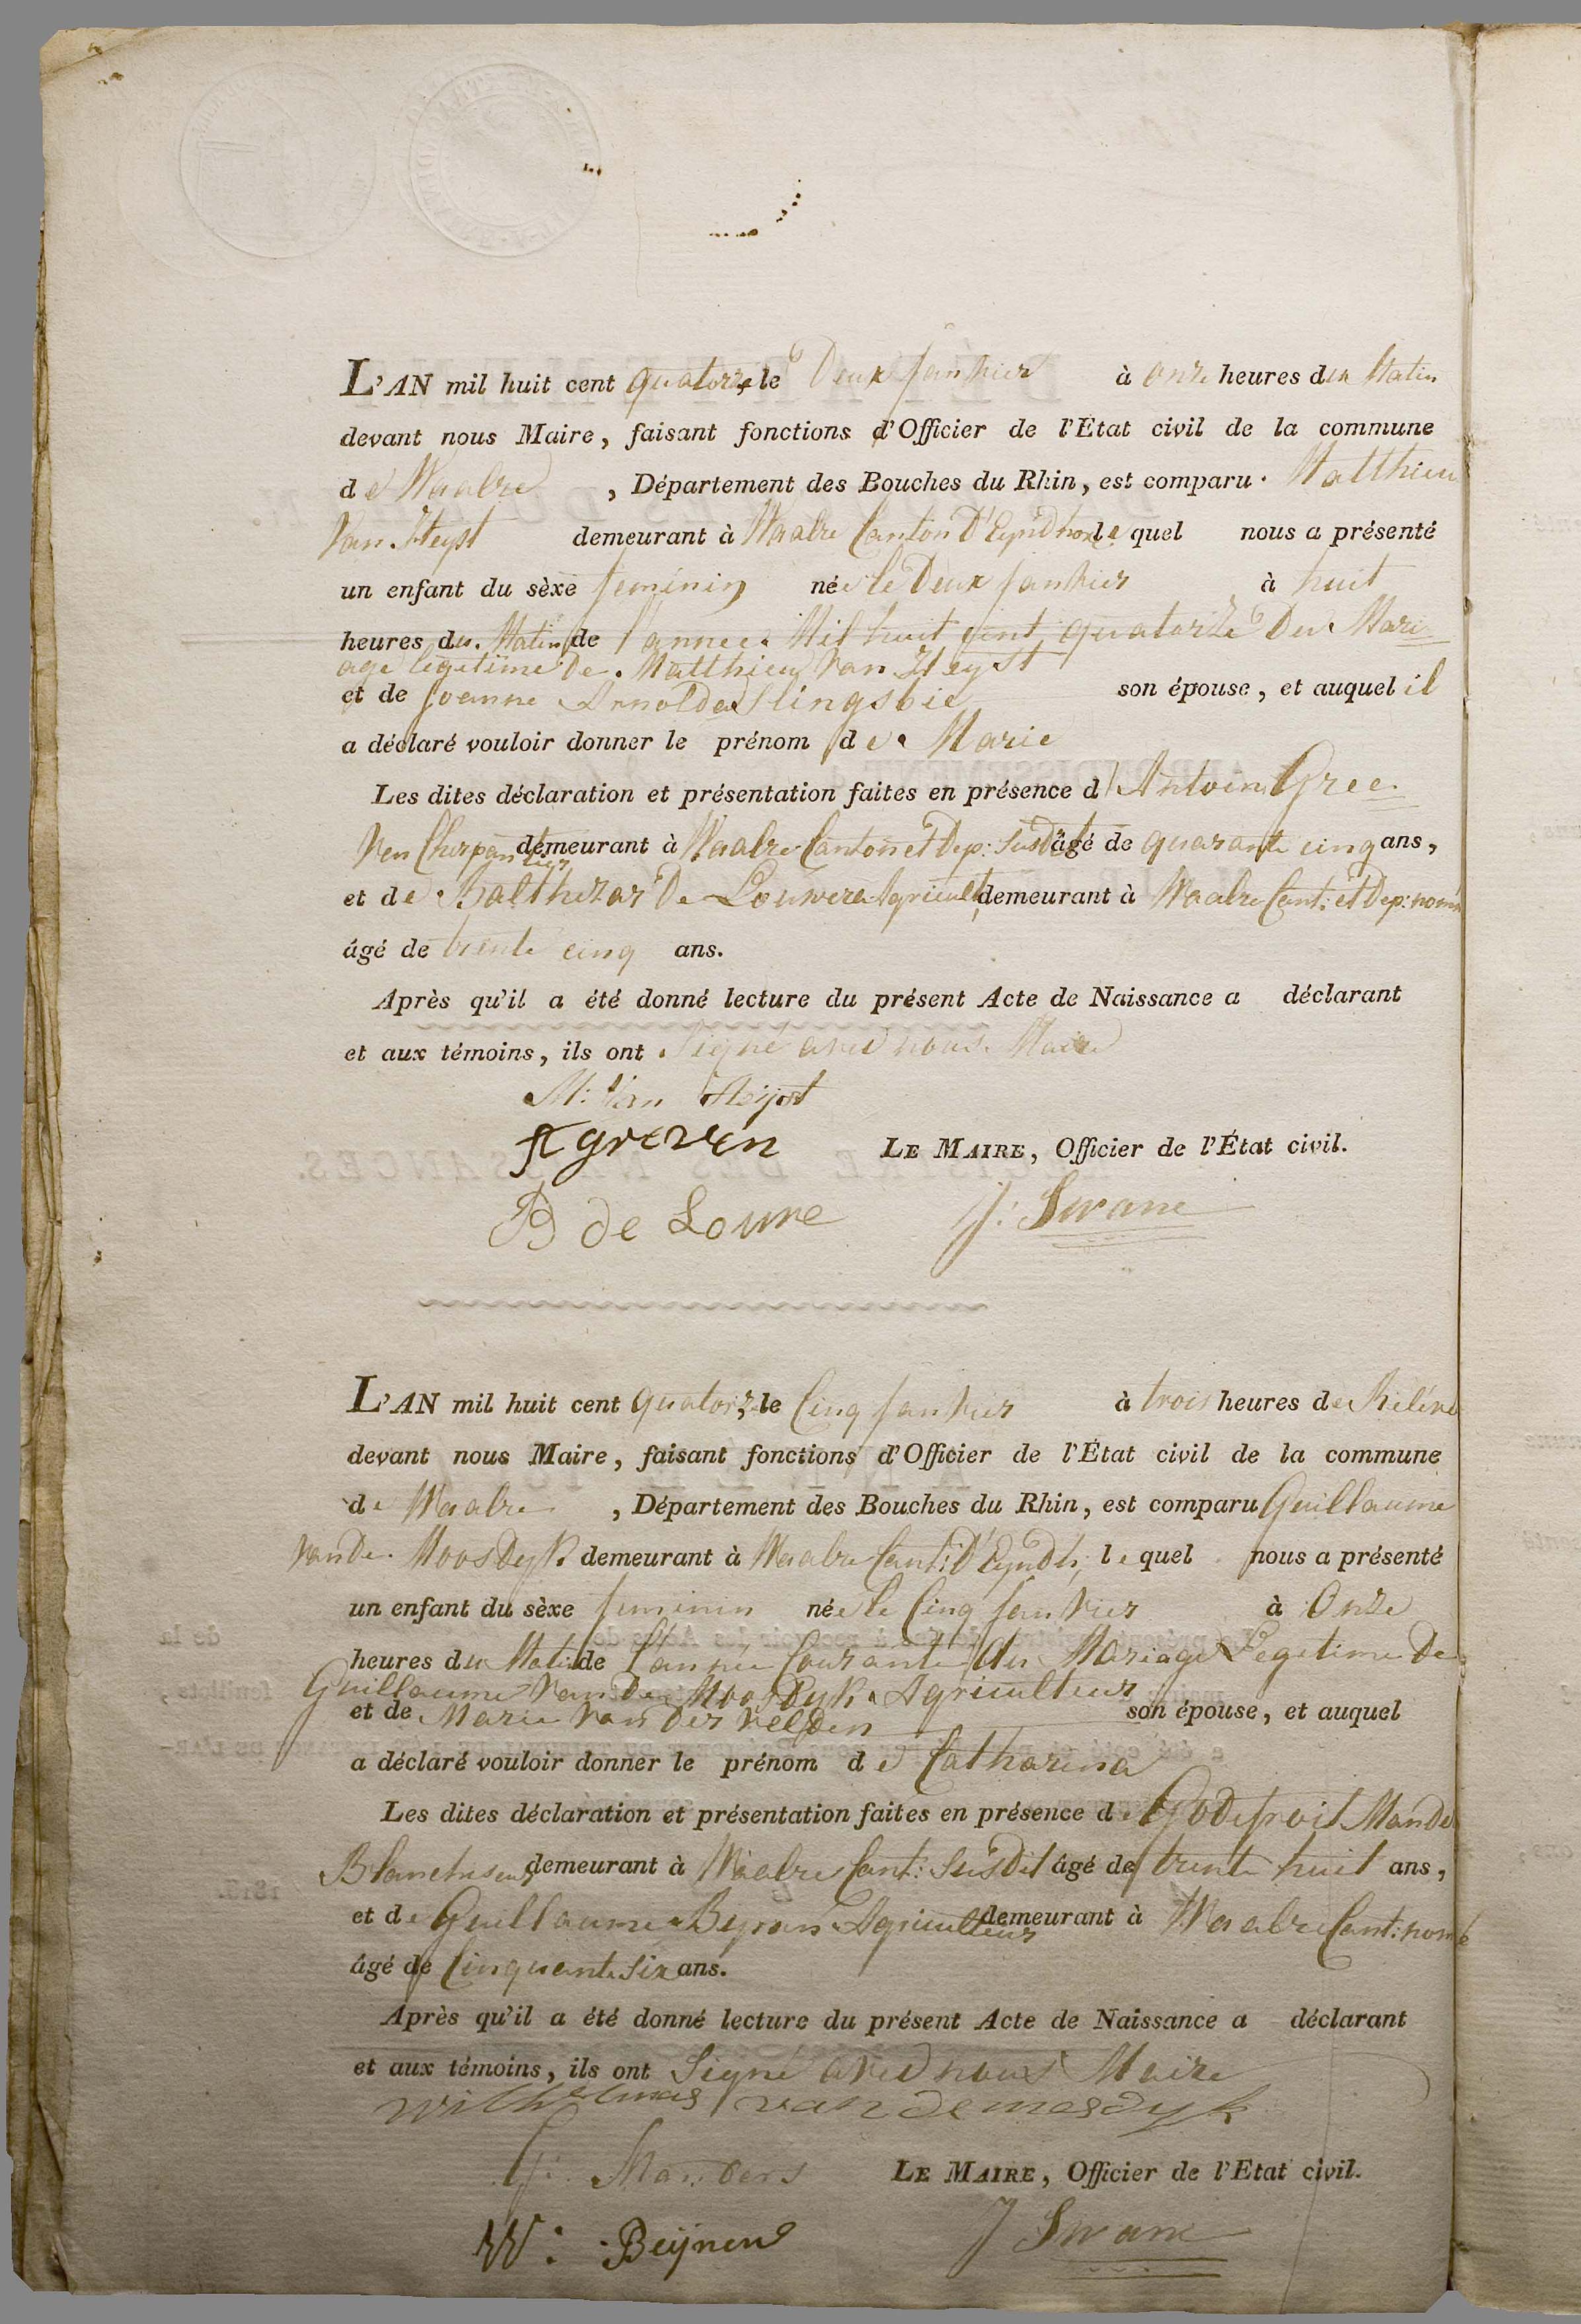 L'AN mil huit cent quatorze, le Deux Janvier à onze heures du Matin
devant nous Maire, faisant fonctions d'Officier de l'État civil de la commune
de Waalre, Département des Bouches du Rhin, est comparu Matthieu
Van Heyst demeurant à Waalre Canton D'Eyndhov lequel nous a présenté
un enfant du sèxe feminin née le Deux Janvier à huit
heures du Matin de l'annee Mil huit cent quatorze Du Mari
age legitime De Matthieu Van Heyst
et de Joanne Arnolda Slingsbie son épouse, et auquel il
a déclaré vouloir donner le prénom de Marie
Les dites déclaration et présentation faites en présence d'Antoin Gree
ven Cherpantier demeurant à Waalre Canton et Dep: susdit âgé de quarante cinq ans,
et de Balthezar De Louwere Agricult demeurant à Waalre Cant: et Dep: nomé
âgé de trente cinq ans.
Après qu'il a été donné lecture du présent Acte de Naissance a déclarant
et aux témoins, ils ont Signé avec nous Maire
M: Van Heijst
A greven
LE MAIRE, Officier de l'État civil.
B de Louwe
J: Swane
L'AN mil huit cent quatorz, le Cinq Janvier à trois heures de Rélévé
devant nous Maire, faisant fonctions d'Officier de l'État civil de la commune
de Waalre, Département des Bouches du Rhin, est comparu Guillaume
Van De Moosdyk demeurant à Waalre Cant: D'Eyndh; lequel nous a présenté
un enfant du sèxe feminin née le Cinq Janvier à Onze
heures du Matin de l'année Courante du Mariage Legitime De
Guillaume Van De Moosdyk Agriculteur
et de Marie Van Der Velden son épouse, et auquel
a déclaré vouloir donner le prénom de Catharina
Les dites déclaration et présentation faites en présence de Godefroid Mande
Blanchiseur demeurant à Waalre Cant: Susdit âgé de trente huit ans,
et de Guillaume Bynen Agriculteur demeurant à Waalre Cant: nomé
âgé de Cinquante Six ans.
Après qu'il a été donné lecture du présent Acte de Naissance a déclarant
et aux témoins, ils ont Signé avec nous Maire
wilhelmus van de mosdyk
G: Manders
LE MAIRE, Officier de l'Etat civil.
W: Beijnen
J Swane